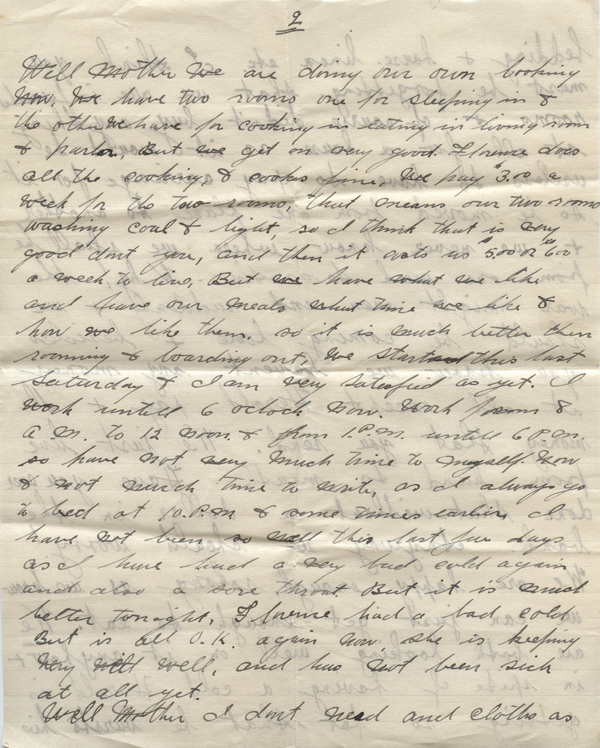 2
Well Mother We are doing our own cooking
Now, We have two rooms one for sleeping in &
the other we have for cooking in eating in living room
& parlor, But we get on very good. Florence does
all the cooking, & cooks fine, We pay 3.00 a
week for the two rooms, that means our two rooms
washing coal & light, so I think that is very
good dont you, and then it costs us $5.00 or $6.00
a week to live, But we have what we like
and have our meals what time we like &
how we like them, so it is much better then
rooming & boarding out, We started this last
Saturday & I am very satesfied as yet. I
work untill 6 oclock Now. Work from 8
A M. to 12 noon & from 1. P.M. untill 6 P.M.
so have not very much time to myself Now
& not much time to write, as I always go
to bed at 10. P.M & some times earlier I
have not been so well this last few days
as I have had a very bad cold again
and also a sore throat But it is much
better tonight, Florence had a bad cold
But is all O.K. again now, she is keeping
very well well, and has not been sick
at all yet.
Well Mother I dont need and cloths as